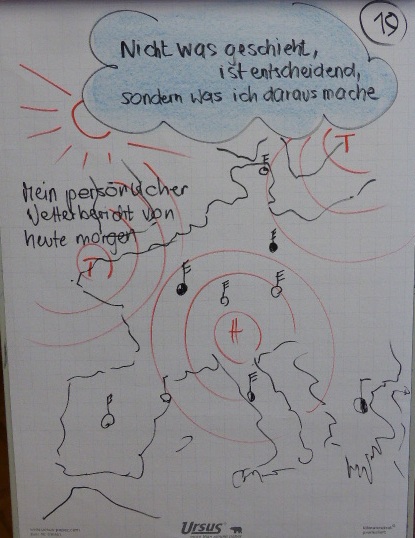 19
Nicht was geschieht,
ist entscheidend,
sondern was ich daraus mache
T
Mein persönlicher
Wetterbericht von
heute morgen
T
H
URSUS